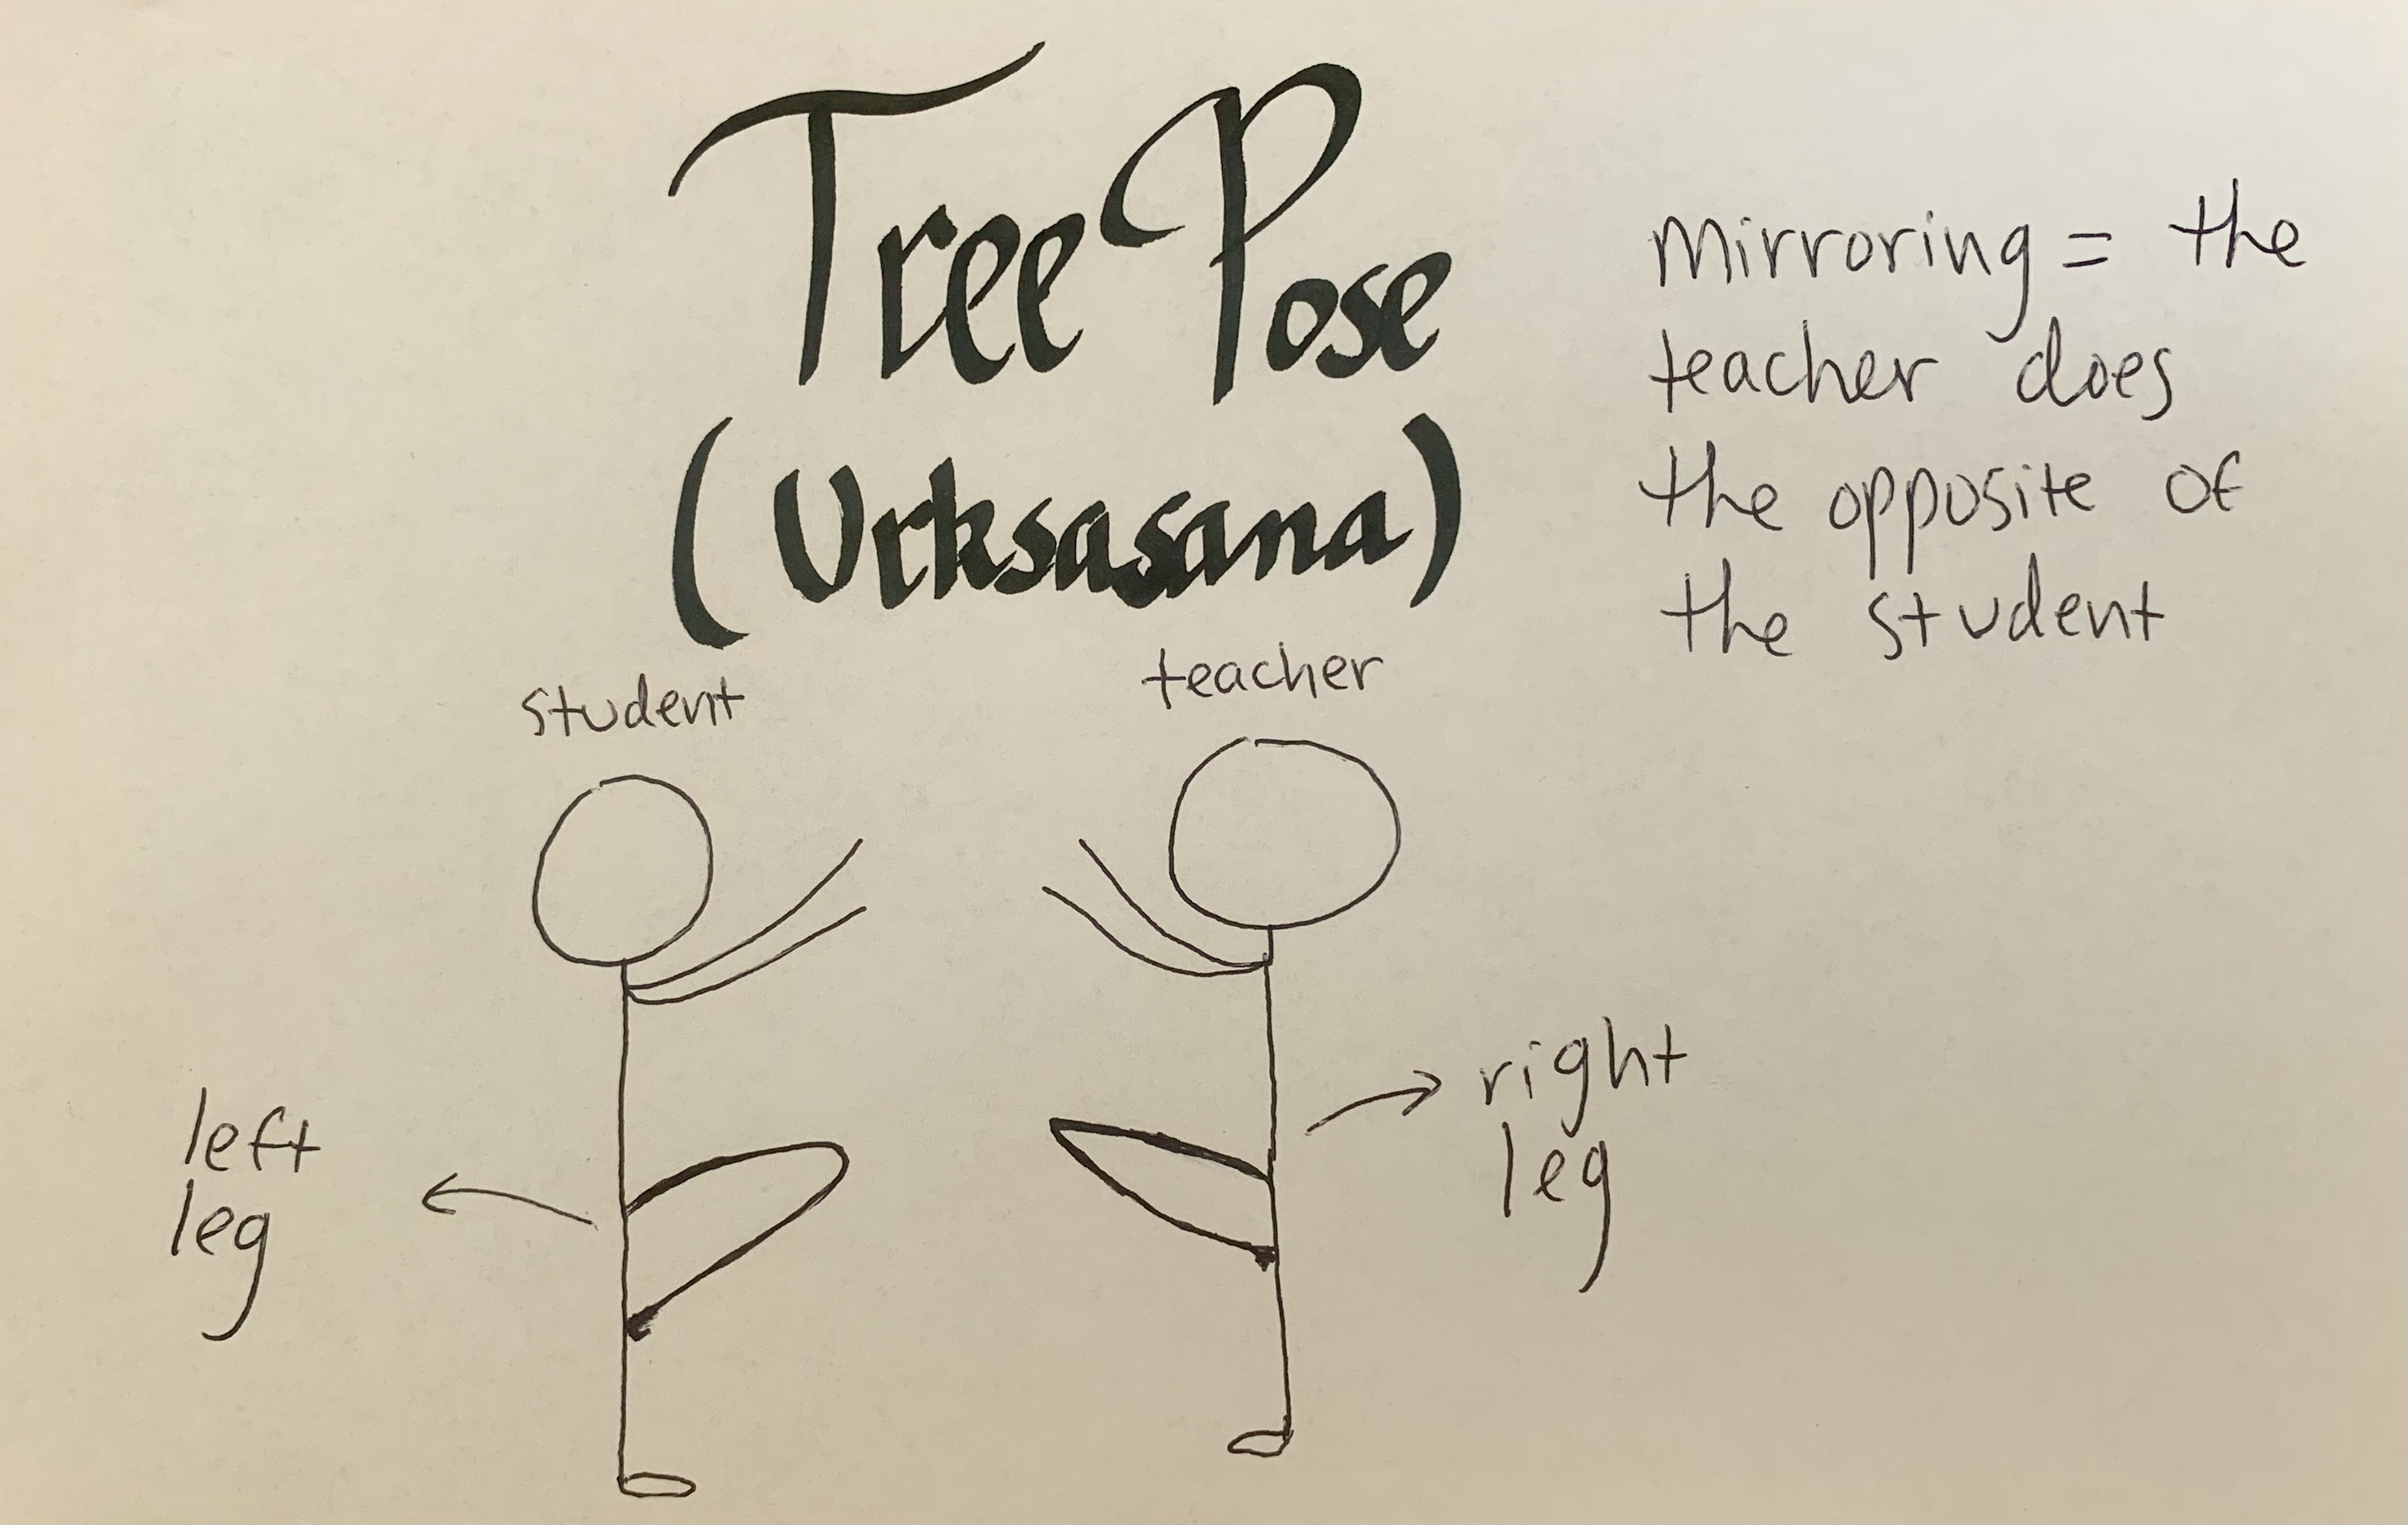 Tree Pose
(Vrksasana)
mirroring = the
teacher does
the opposite of
the student
student
teacher
left
leg
right
leg